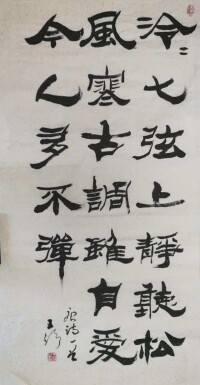 泠〻七弦上靜聽松
風寒古調雖自愛
今人多不彈
唐詩一首